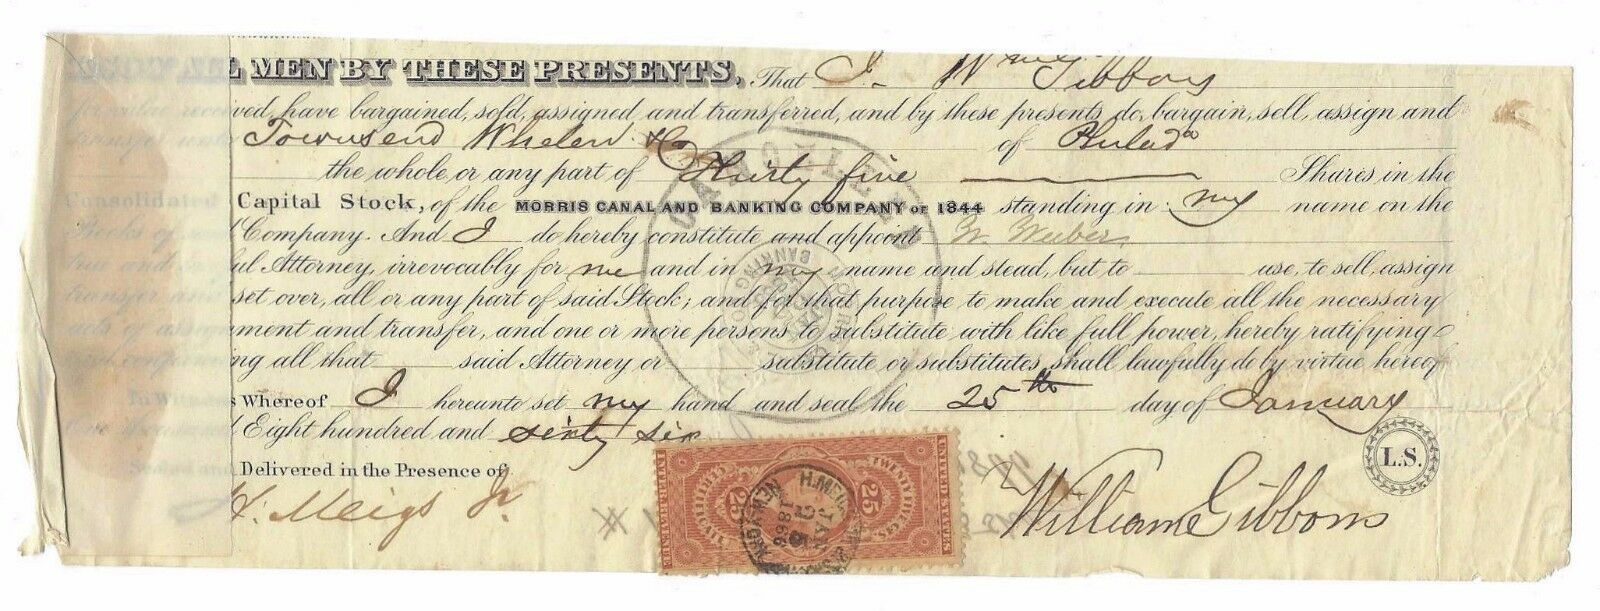 KNOW ALL MEN BY THESE PRESENTS, That I Wm Gibbons
for value received have bargained, sold, assigned and transferred, and by these presents do, bargain, sell, assign and
transfer unto Townsend Whelen & Co of Philada
the whole or any part of Thirty five Shares in the
Consolidated Capital Stock, of the MORRIS CANAL AND BANKING COMPANY OF 1844 standing in my name on the
Books of said Company. And I do hereby constitute and appoint W. Weber
true and lawful Attorney, irrevocably for me and in my name and stead, but to use, to sell, assign
transfer and set over, all or any part of said Stock; and for that purpose to make and execute all the necessary
acts of assignment and transfer, and one or more persons to substitute with like full power, hereby ratifying
and confirming all that said Attorney or substitute or substitutes shall lawfully do by virtue hereof
In Witness Whereof I hereunto set my hand and seal the 25th day of January
One thousand Eight hundred and sixty six
Sealed and Delivered in the Presence of
H. Meigs Jr.
William Gibbons
L.S.
CANCELLED
MORRIS CANAL BANKING CO
UNITED STATES
TWENTY FIVE CTS.
25
25
CERTIFICATE
INTER. REVENUE
H. MEIGS JR
JAN
25
1866
NEW YORK